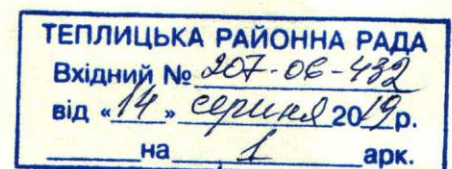 ТЕПЛИЦЬКА РАЙОННА РАДА
Вхідний № 207-06-432
від «14» серпня 2019 р.
на 1 арк.